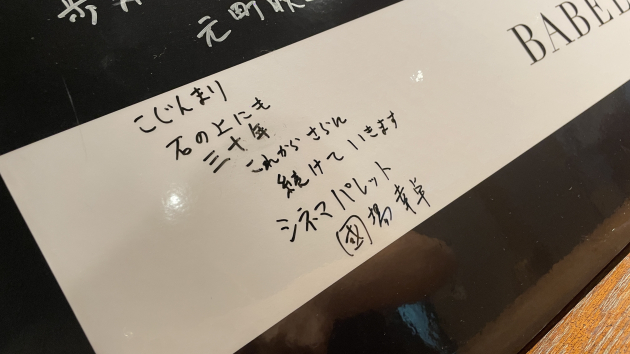 元町映
BABEL
こじんまり
石の上にも
三十年
これからさらに
続けていきます
シネマパレット
國場幸卓